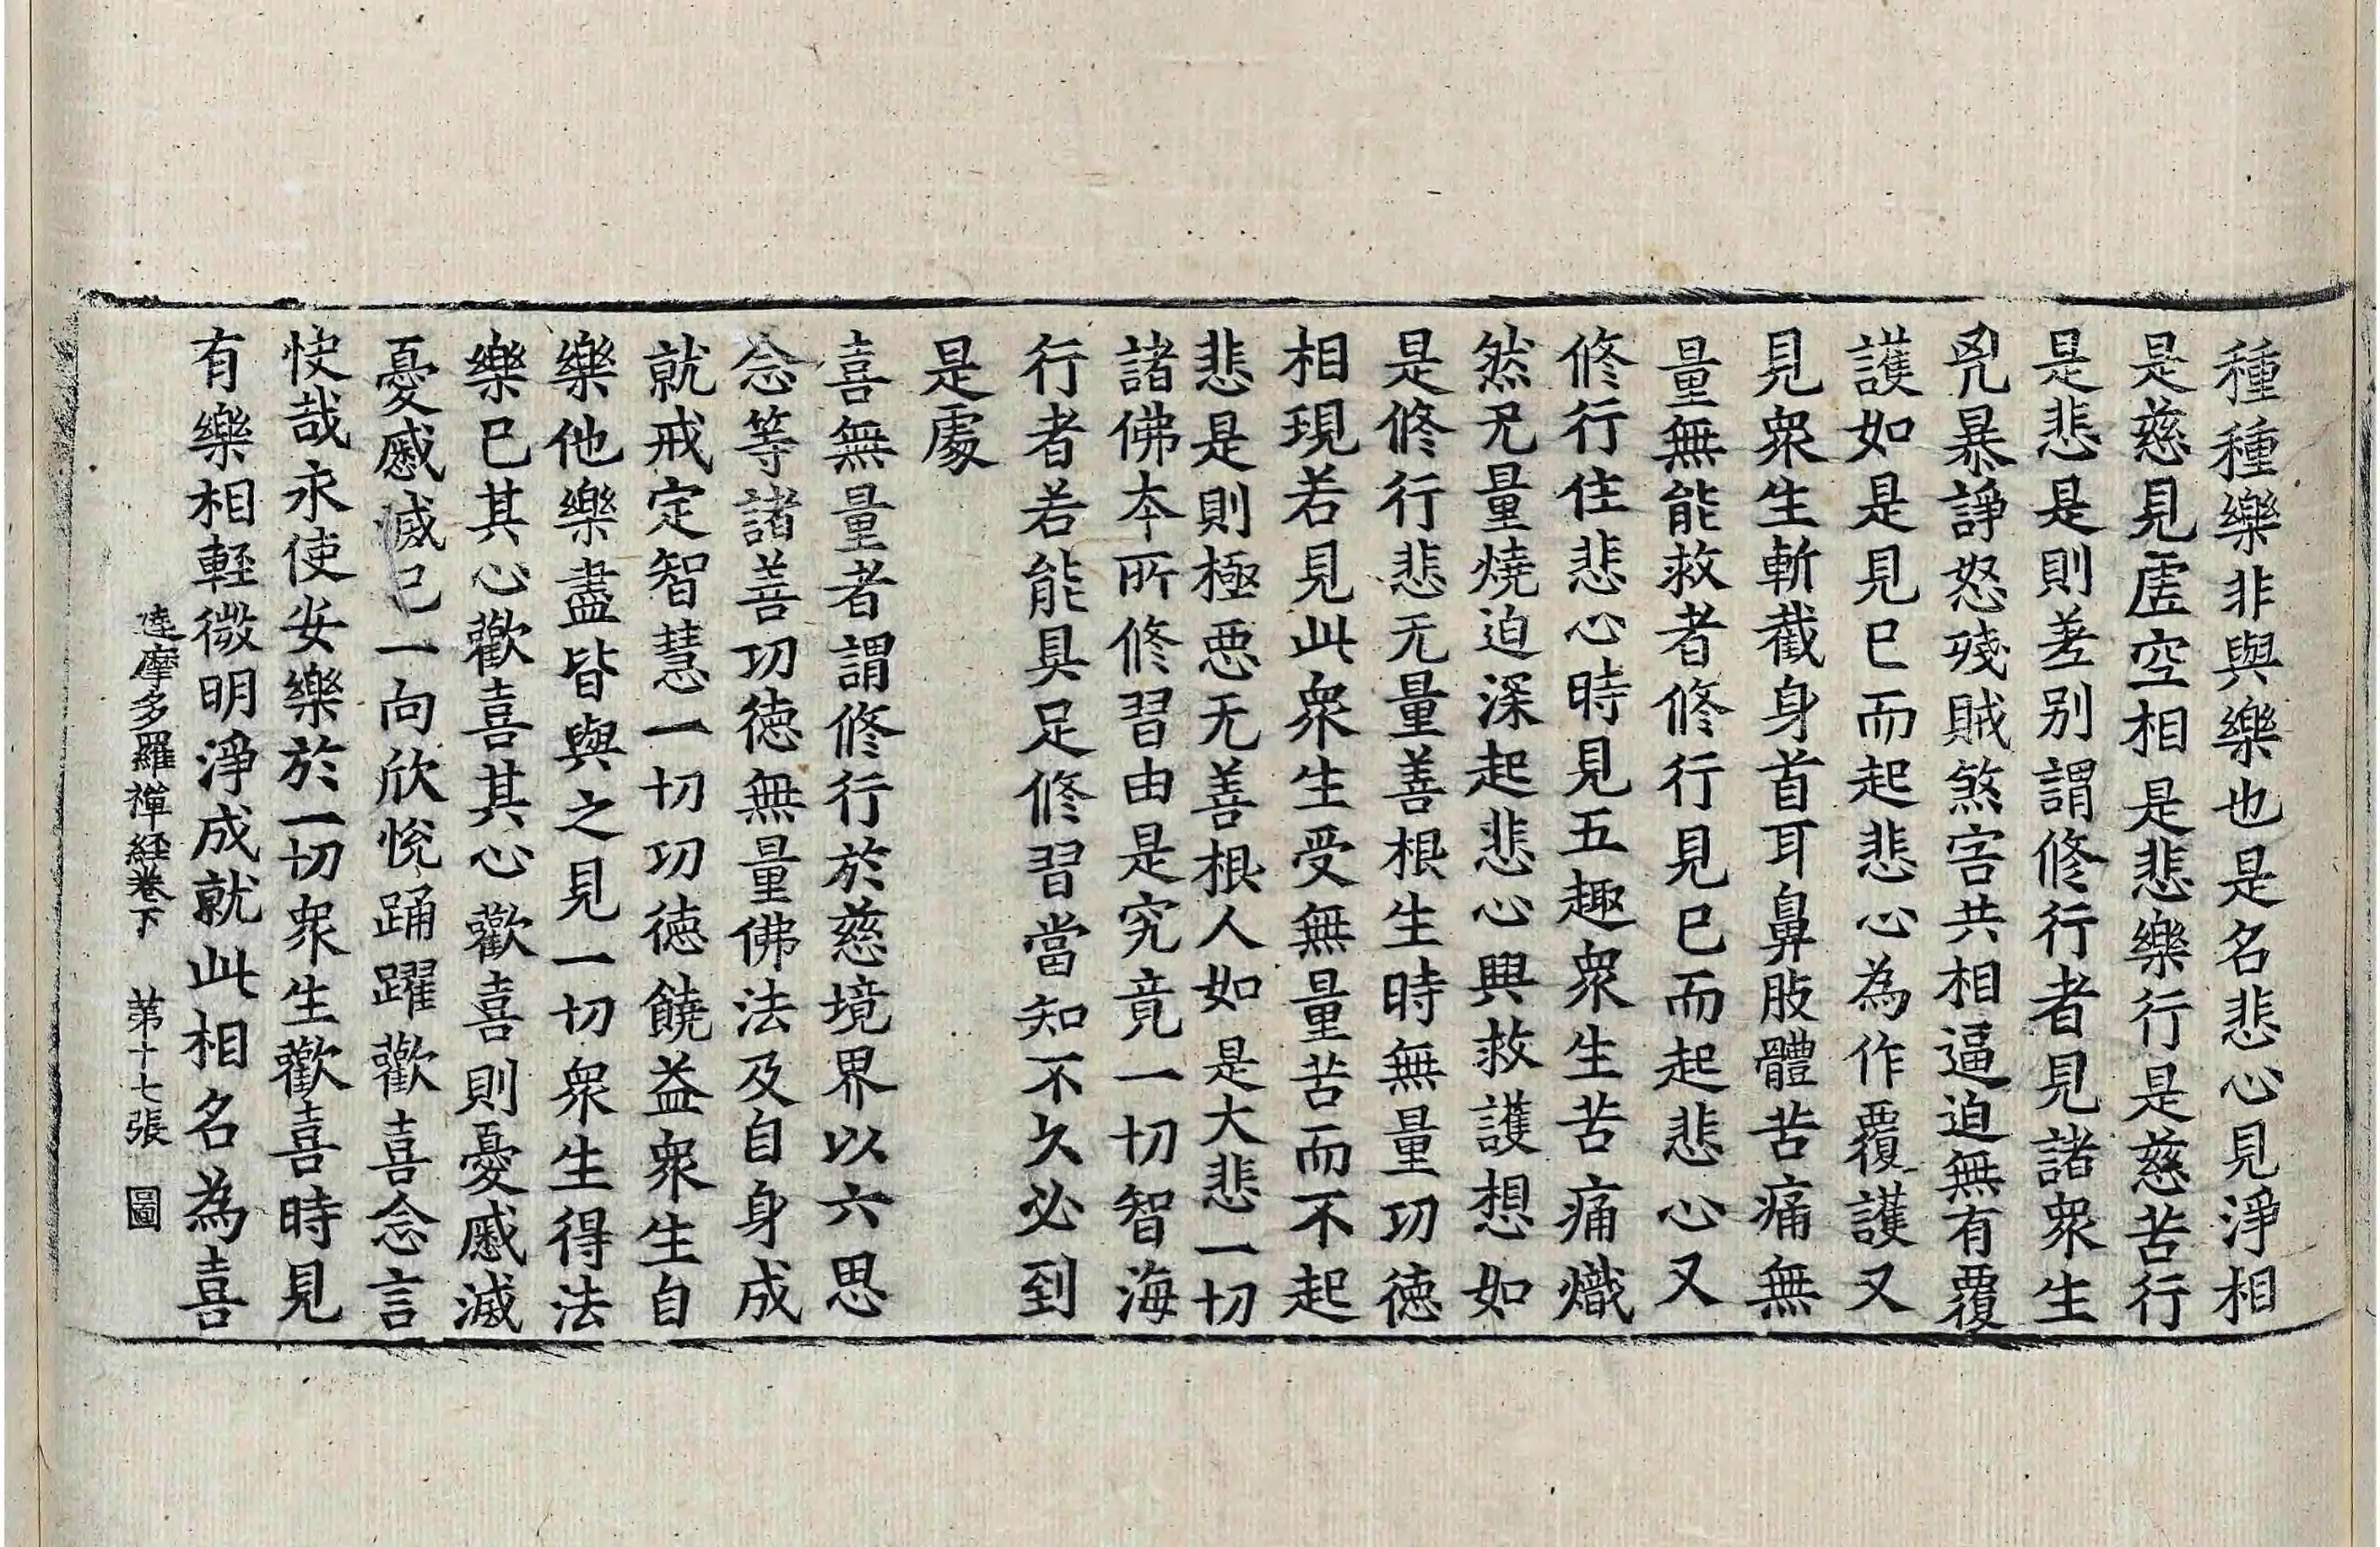 種種樂非與樂也是名悲心見淨相
是慈見虛空相是悲樂行是慈苦行
是悲是則差別謂修行者見諸衆生
兇暴諍怒殘賊煞害共相逼迫無有覆
護如是見已而起悲心為作覆護又
見衆生斬截身首耳鼻肢體苦痛無
量無能救者修行見已而起悲心又
修行住悲心時見五趣衆生苦痛熾
然无量燒迫深起悲心興救護想如
是修行悲无量善根生時無量功德
相現若見此衆生受無量苦而不起
悲是則極惡无善根人如是大悲一切
諸佛本所修習由是究竟一切智海
行者若能具足修習當知不久必到
是處
喜無量者謂修行於慈境界以六思
念等諸善功德無量佛法及自身成
就戒定智慧一切功德饒益衆生自
樂他樂盡皆與之見一切衆生得法
樂已其心歡喜其心歡喜則憂慼滅
憂慼滅已一向欣悅踊躍歡喜念言
快哉永使安樂於一切衆生歡喜時見
有樂相輕微明淨成就此相名為喜
達摩多羅禪經卷下　第十七張　圖